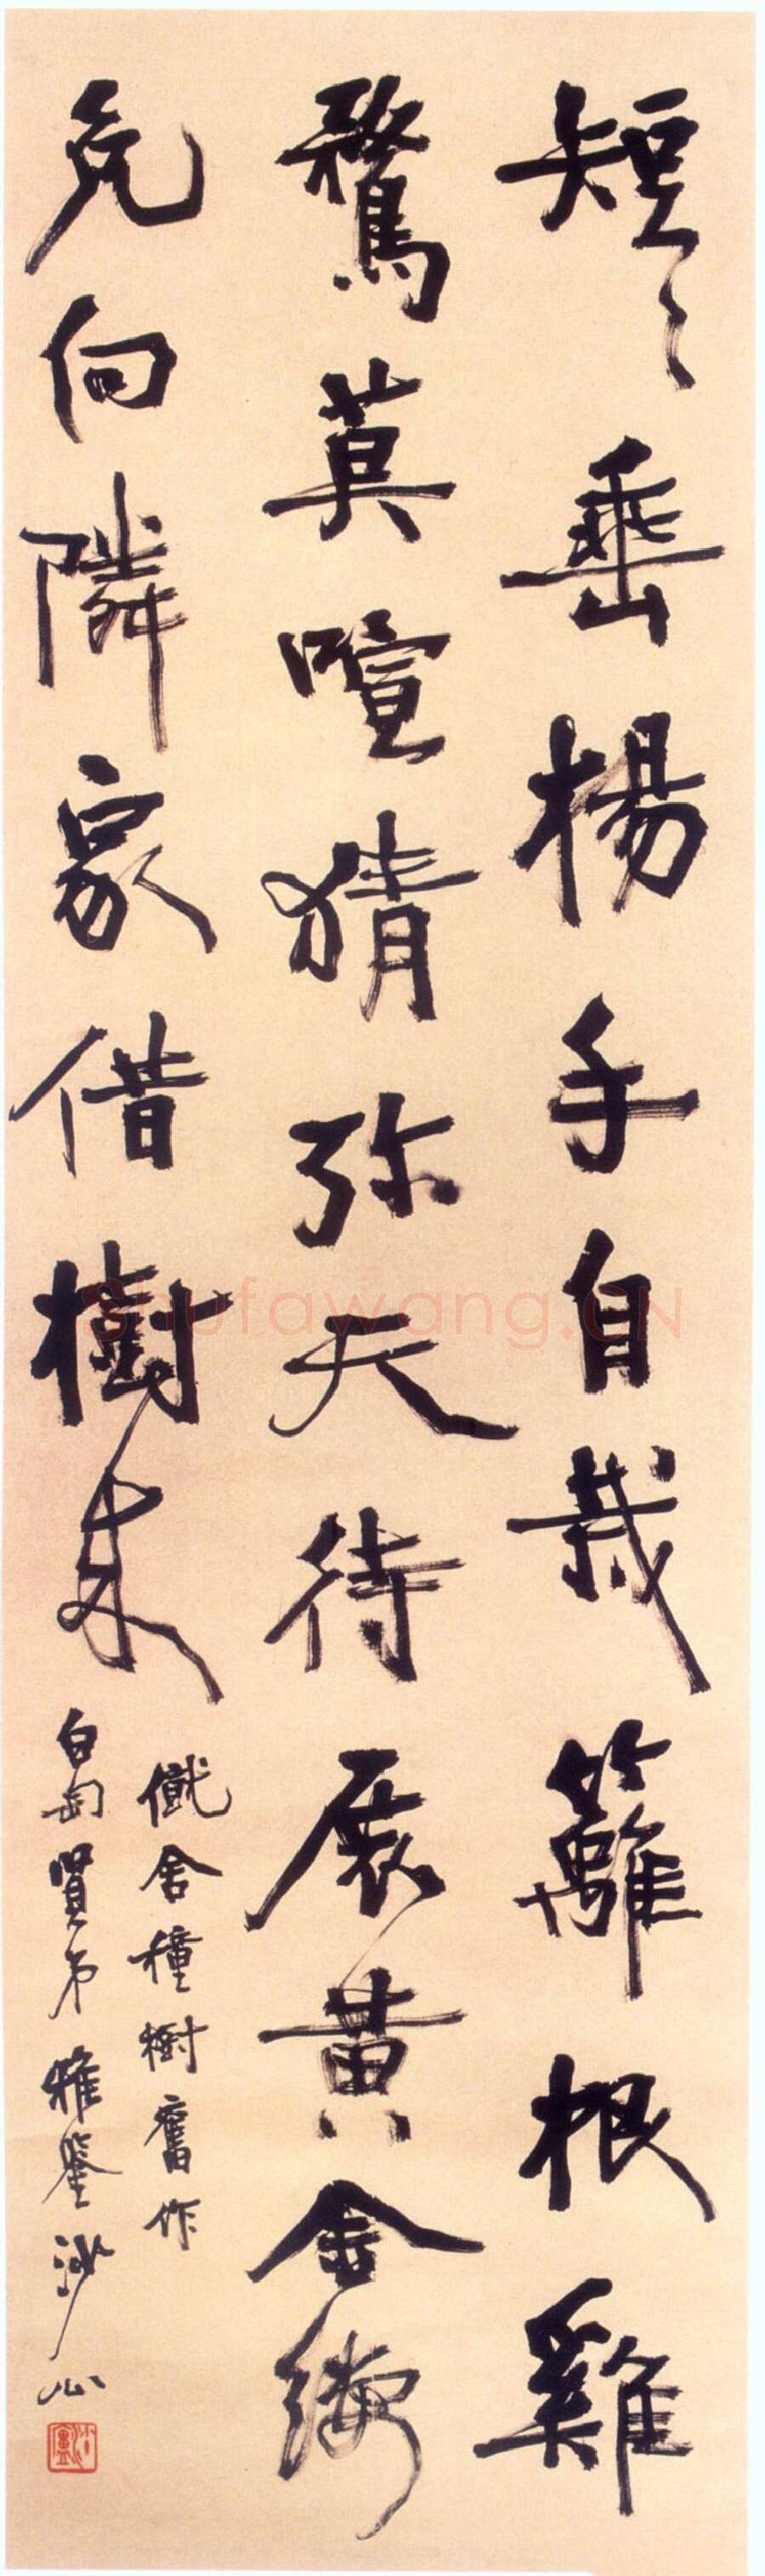 短〻垂楊手自栽籬根雞
鶩莫喧猜弥天待展黃金縷
免向隣家借樹來
僦舍種樹舊作
白匋賢弟雅鑒 沙
Shufawang.CN